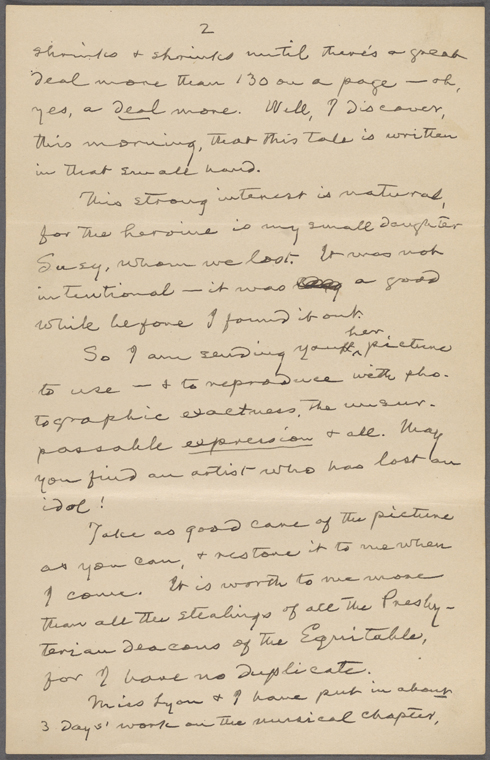 2
shrinks & shrinks until there's a great
deal more than 130 on a page — oh,
yes, a deal more. Well, I discover,
this morning, that this tale is written
in that small hand.
This strong interest is natural,
for the heroine is my small daughter
Susy, whom we lost. It was not
intentional — it was a good
while before I found it out.
So I am sending you her picture
to use — & to reproduce with pho-
tographic exactness, the unsur-
passable expression & all. May
you find an artist who has lost an
idol!
Take as good care of the picture
as you can, & restore it to me when
I come. It is worth to me more
than all the stealings of all the Presby-
terian deacons of the Equitable,
for I have no duplicate.
Miss Lyon & I have put in about
3 days' work on the musical chapter,